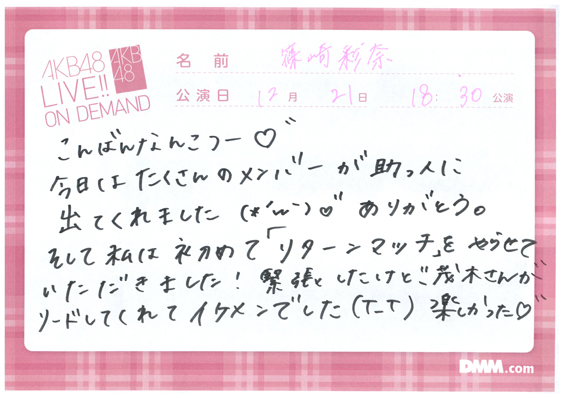 AKB48
LIVE!!
ON DEMAND
AKB
48
名前 篠崎彩奈
公演日 12月 21日 18:30 公演
こんばんなんこつー♡
今日はたくさんのメンバーが助っ人に
出てくれました(*'ω'*)♡ ありがとう。
そして私は初めて「リターンマッチ」をやらせて
いただきました！緊張したけど茂木さんが
リードしてくれてイケメンでした(T_T) 楽しかった♡
DMM.com